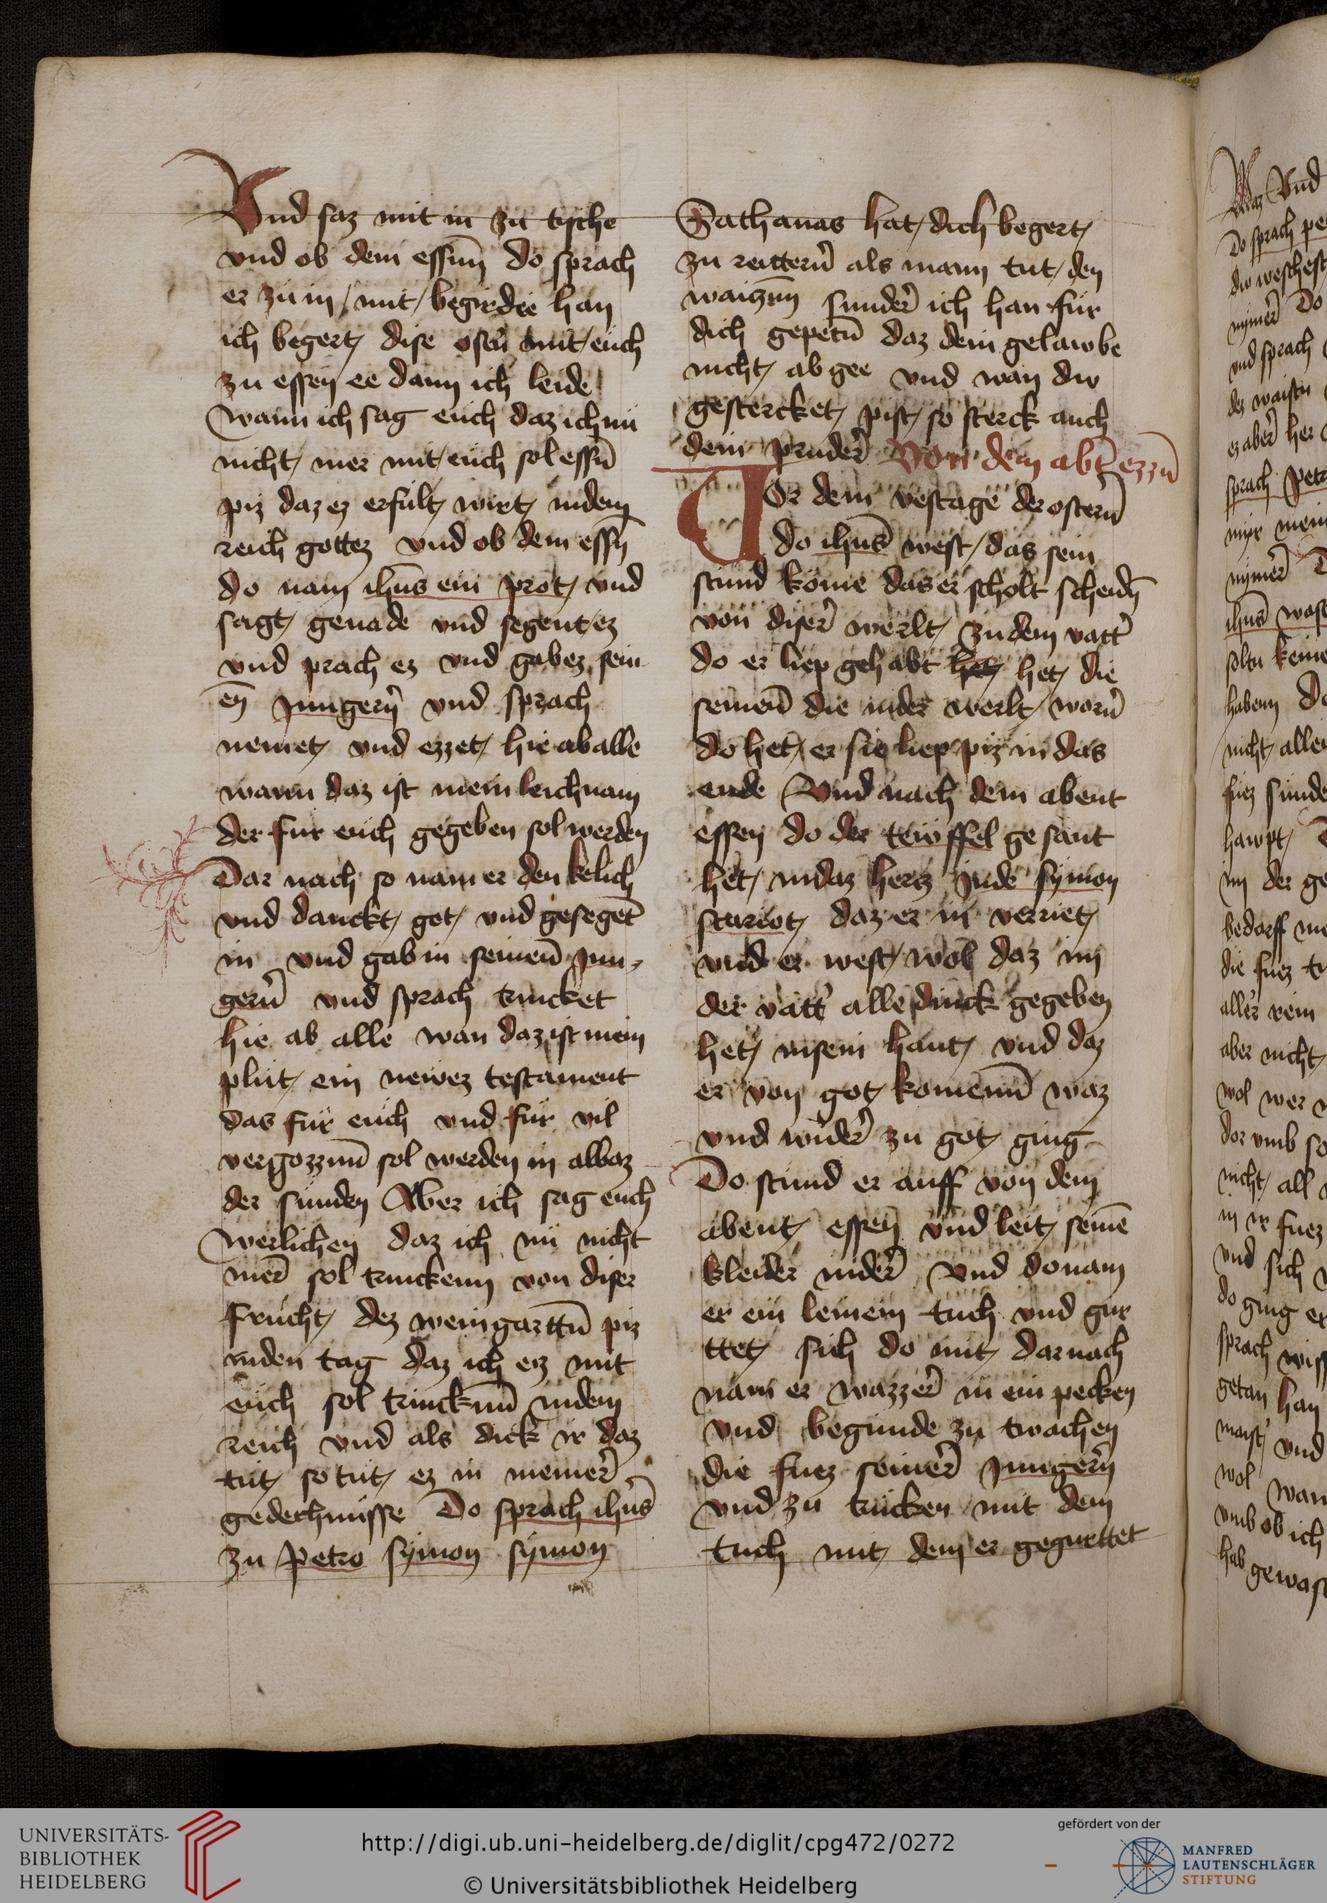 Vnd saz mit in zu tysche
vnd ob dem essūn do sprach
er zu in mit begirdɇ han
ich begert dise ostn̄ mit euch
zu essen ee dann ich leide
Wann ich sag euch daz ich nu
nicht mer mit euch sol essn̄
piz daz ez erfult wirt indem
reich gottez vnd ob dem essn̄
do nam ihūs ein prot vnd
sagt genade vnd segent ez
vnd prach ez vnd gabez sein
en̄ Jungern̄ vnd sprach
nemet vnd ezzet hie ab alle
wann daz ist mein leichnam
der fur euch gegeben sol werden
Dar nach so nam er den kelich
vnd danckt got vnd gesegēt
in vnd gab in seinen̄ Jun-
gern̄ vnd sprach trincket
hie ab alle wan daz ist mein
plut ein newez testament
das fur euch vnd fur vil
vergozzn̄ sol werden in ablaz
der sunden Aber ich sag euch
Werlichen daz ich nu nicht
mer̄ sol trinckenn von diser
frucht dez weingarttn̄ piz
inden tag daz ich ez mit
euch sol trinckn̄ indem
reich vnd als dick ir daz
tut so tut ez in meiner̄
gedechnusse Do sprach ihūs
zu Petro symon symon
Sathanas hat dich begert
zu reittern̄ als mann tut den
waiczn̄ sunder̄ ich han fur
dich gepetn̄ daz dein gelawbe
nicht ab gee vnd wan du
gestercket pist so sterck auch
dein pruder̄ Von dem abt̄ ezzn̄
Vor dem vestage der ostern̄
do ihūs west das sein
stund kome das er scholt scheidn̄
von diser̄ werlt zu dem vatt̄
do er liep gehabt het het die
seinen̄ die inder werlt worn̄
do het er sie liep piz in das
ende Vnd nach dem abent
essen do der tewffel gesant
het indaz hercz Jude symon
scariot daz er in verriet
vnd er west wol daz im
der vatt̄ alle dinck gegeben
het in sein hant vnd daz
er von got komenn̄ waz
vnd wider̄ zu got ging
Do stund er auff von dem
abent essen vnd leit seinē
kleider nider̄ vnd do nam
er ein leinein tuch vnd gur
ttet sich do mit dar nach
nam er wazzer̄ in ein pecken
vnd begunde zu twachen
die fuez seiner̄ Jungern̄
vnd zu trucken mit dem
tuch mit dem er gegurttet
Do sprach
vnd sprach
sprach
UNIVERSITÄTS-
BIBLIOTHEK
HEIDELBERG
http://digi.ub.uni-heidelberg.de/diglit/cpg472/0272
© Universitätsbibliothek Heidelberg
gefördert von der
MANFRED
LAUTENSCHLÄGER
STIFTUNG